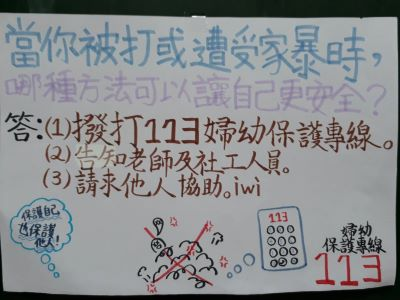 當你被打或遭受家暴時，
哪種方法可以讓自己更安全？
答：(1)撥打113婦幼保護專線。
(2)告知老師及社工人員。
(3)請求他人協助。iwi
保護自己
也保護
他人！
113
婦幼
保護專線
113